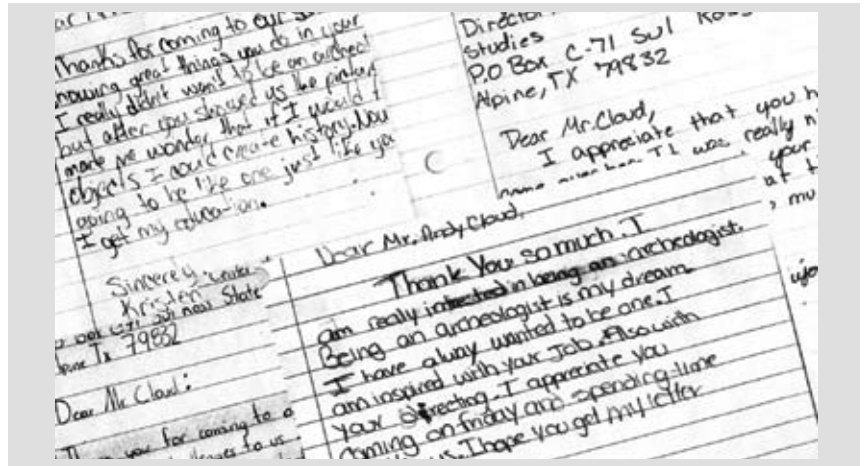 Thanks for coming to our
howing great things you do in your
I really didn't want to be an archeol
but after you showed us the
made me wonder that if I would f
objects I could create history. Now
going to be like one just like you
I get my education.
Sincerely,
Kristen
79832
Dear Mr Cloud:
you for coming to a
to us
Director
Studies
P.O Box C-71 Sul Ross
Alpine, TX 79832
Dear Mr. Cloud,
I appreciate that you h
was really n
your
Dear Mr. Andy Cloud,
Thank You so much. I
am really intrested in being an archeologist.
Being an archeologist is my dream
I have alway wanted to be one. I
am inspired with your Job. Also with
your directing. I appreciate you
coming on friday and spending time
us. I hope you get my letter